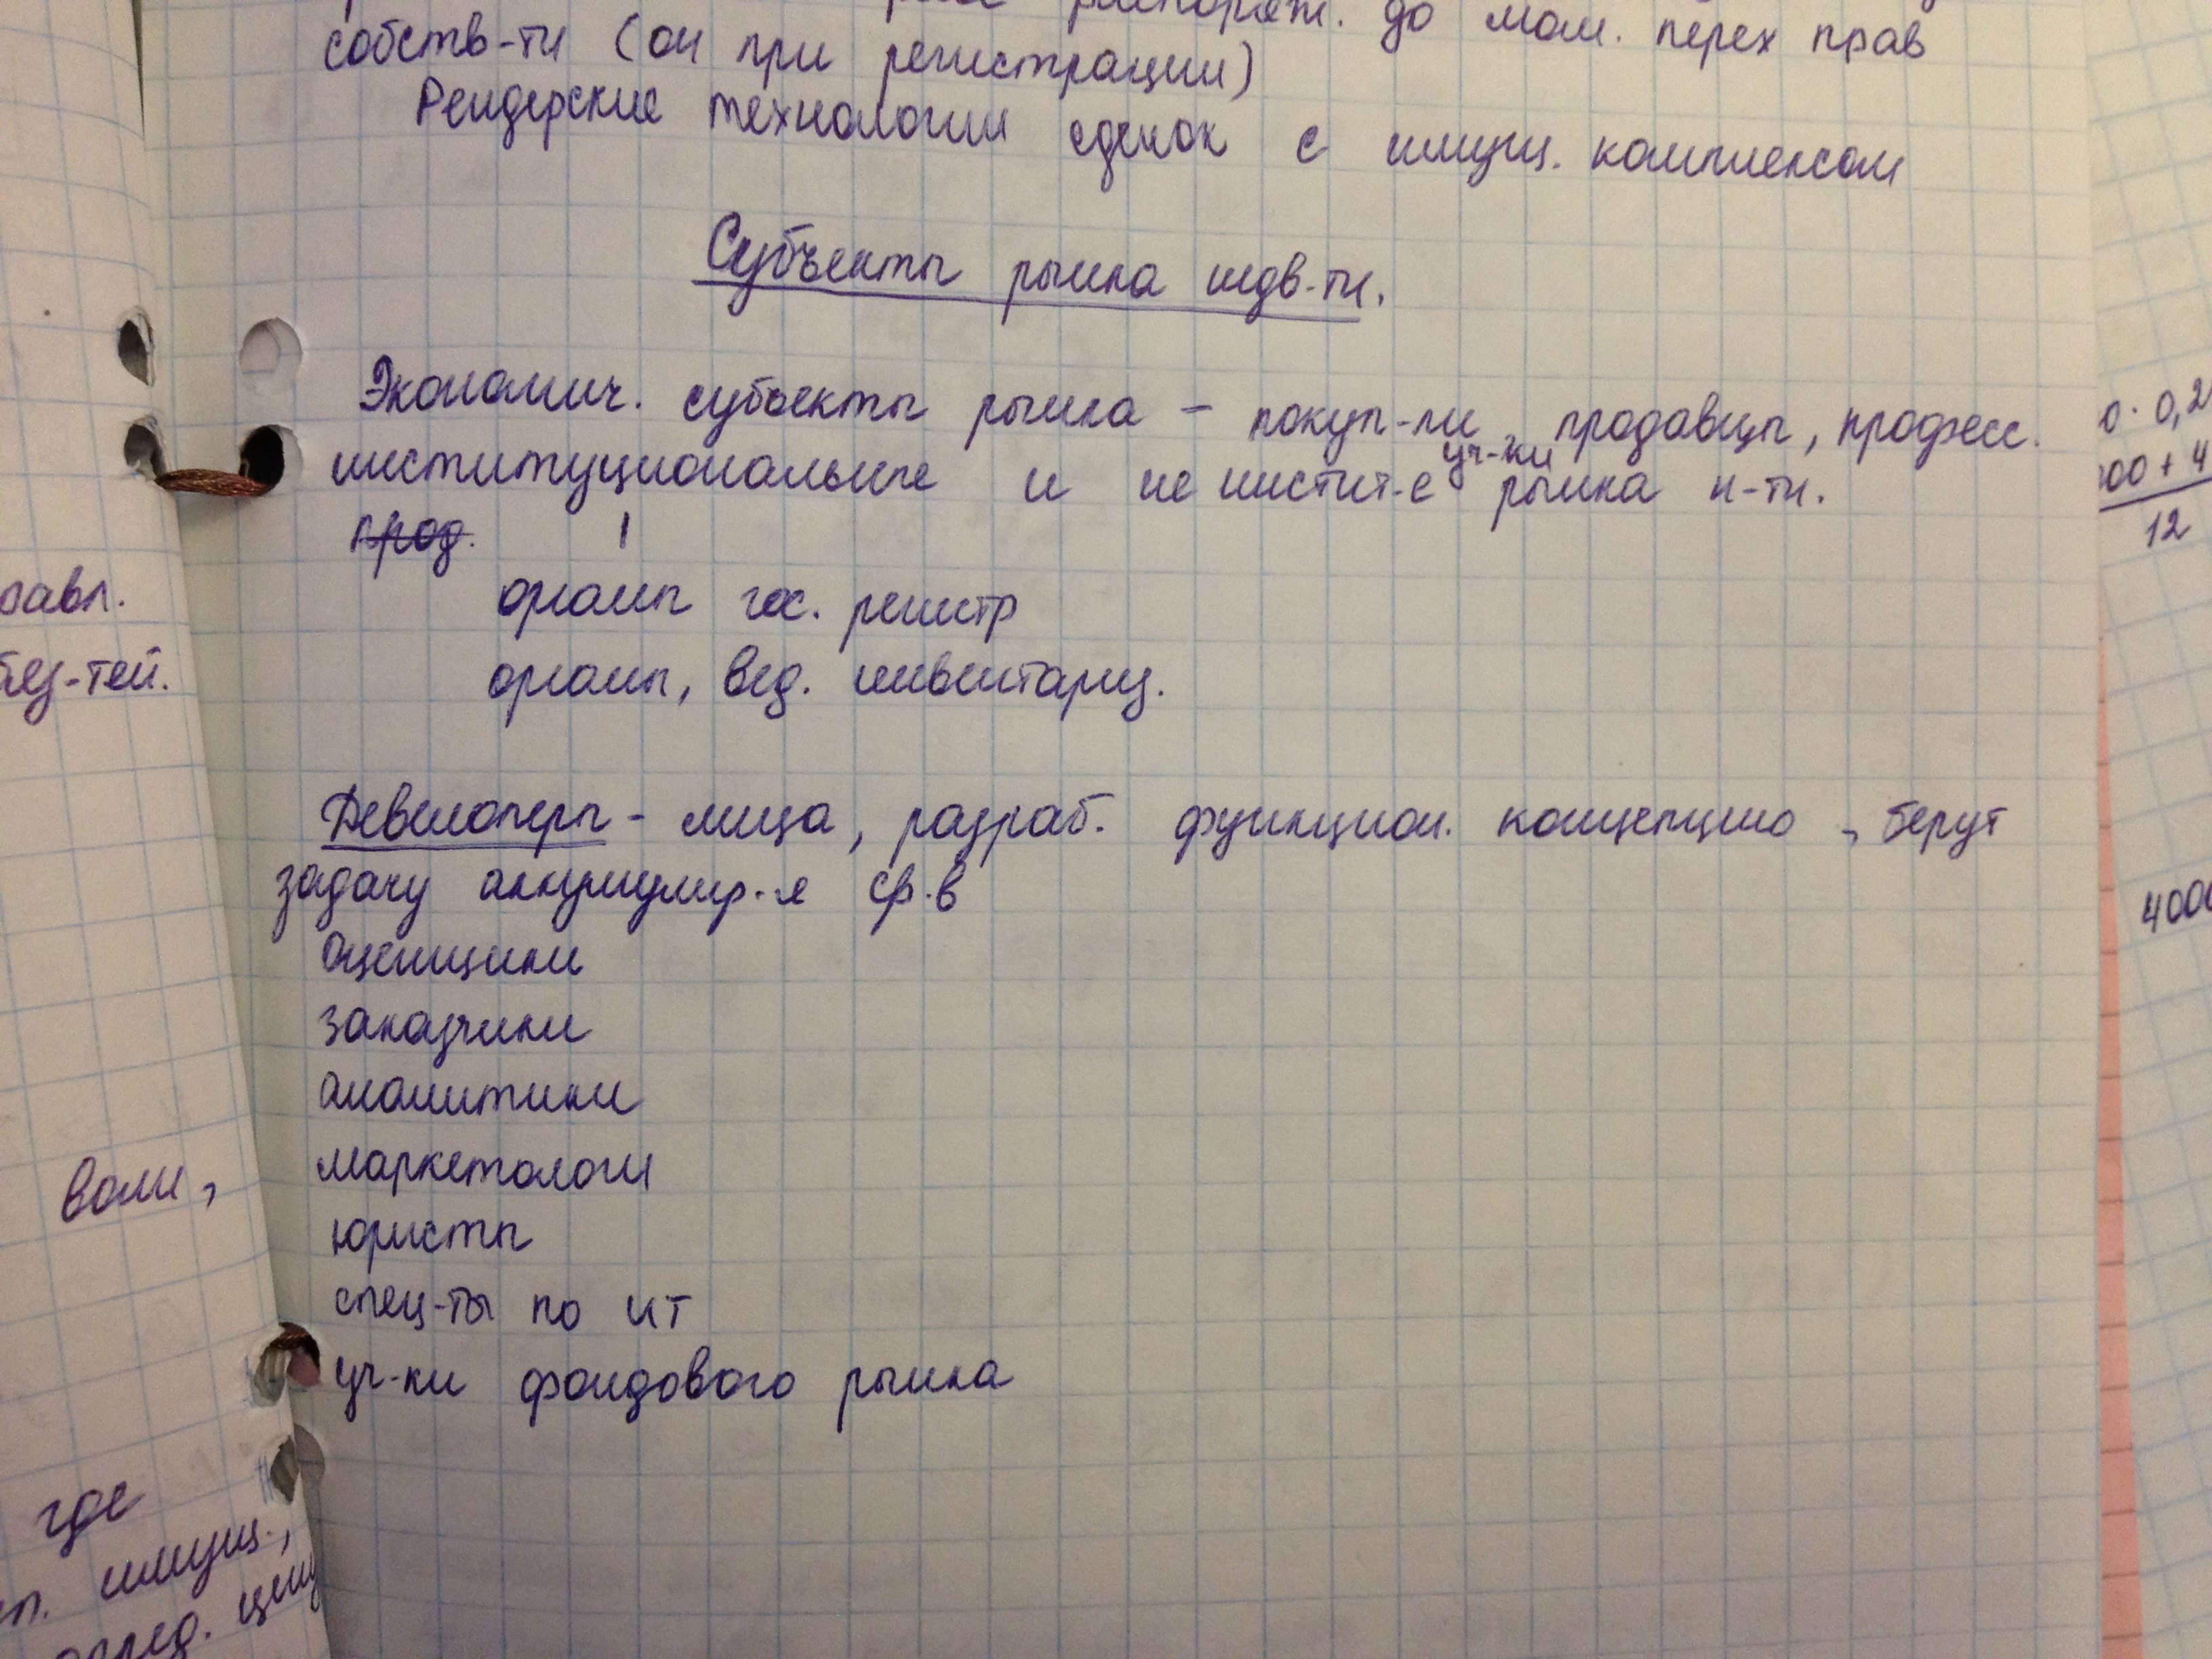 распоряж. до мом. перех прав
собств-ти (он при регистрации)
Рейдерские технологии сделок с имущ. комплексом
Субъекты рынка недв-ти.
Экономич. субъекты рынка – покуп-ли, продавцы, професс.
институциональные и не инстит-е уч-ки рынка н-ти.
прод.
органы гос. регистр
органы, вед. инвентариз.
Девелоперы - лица, разраб. функцион. концепцию, берут
задачу аккумулир-я ср-в
оценщики
заказчики
аналитики
маркетологи
юристы
спец-ты по ИТ
уч-ки фондового рынка
равл.
-тей.
вании,
где
имущ.,
опред. цену
0 · 0,2
000 + 4
12
4000